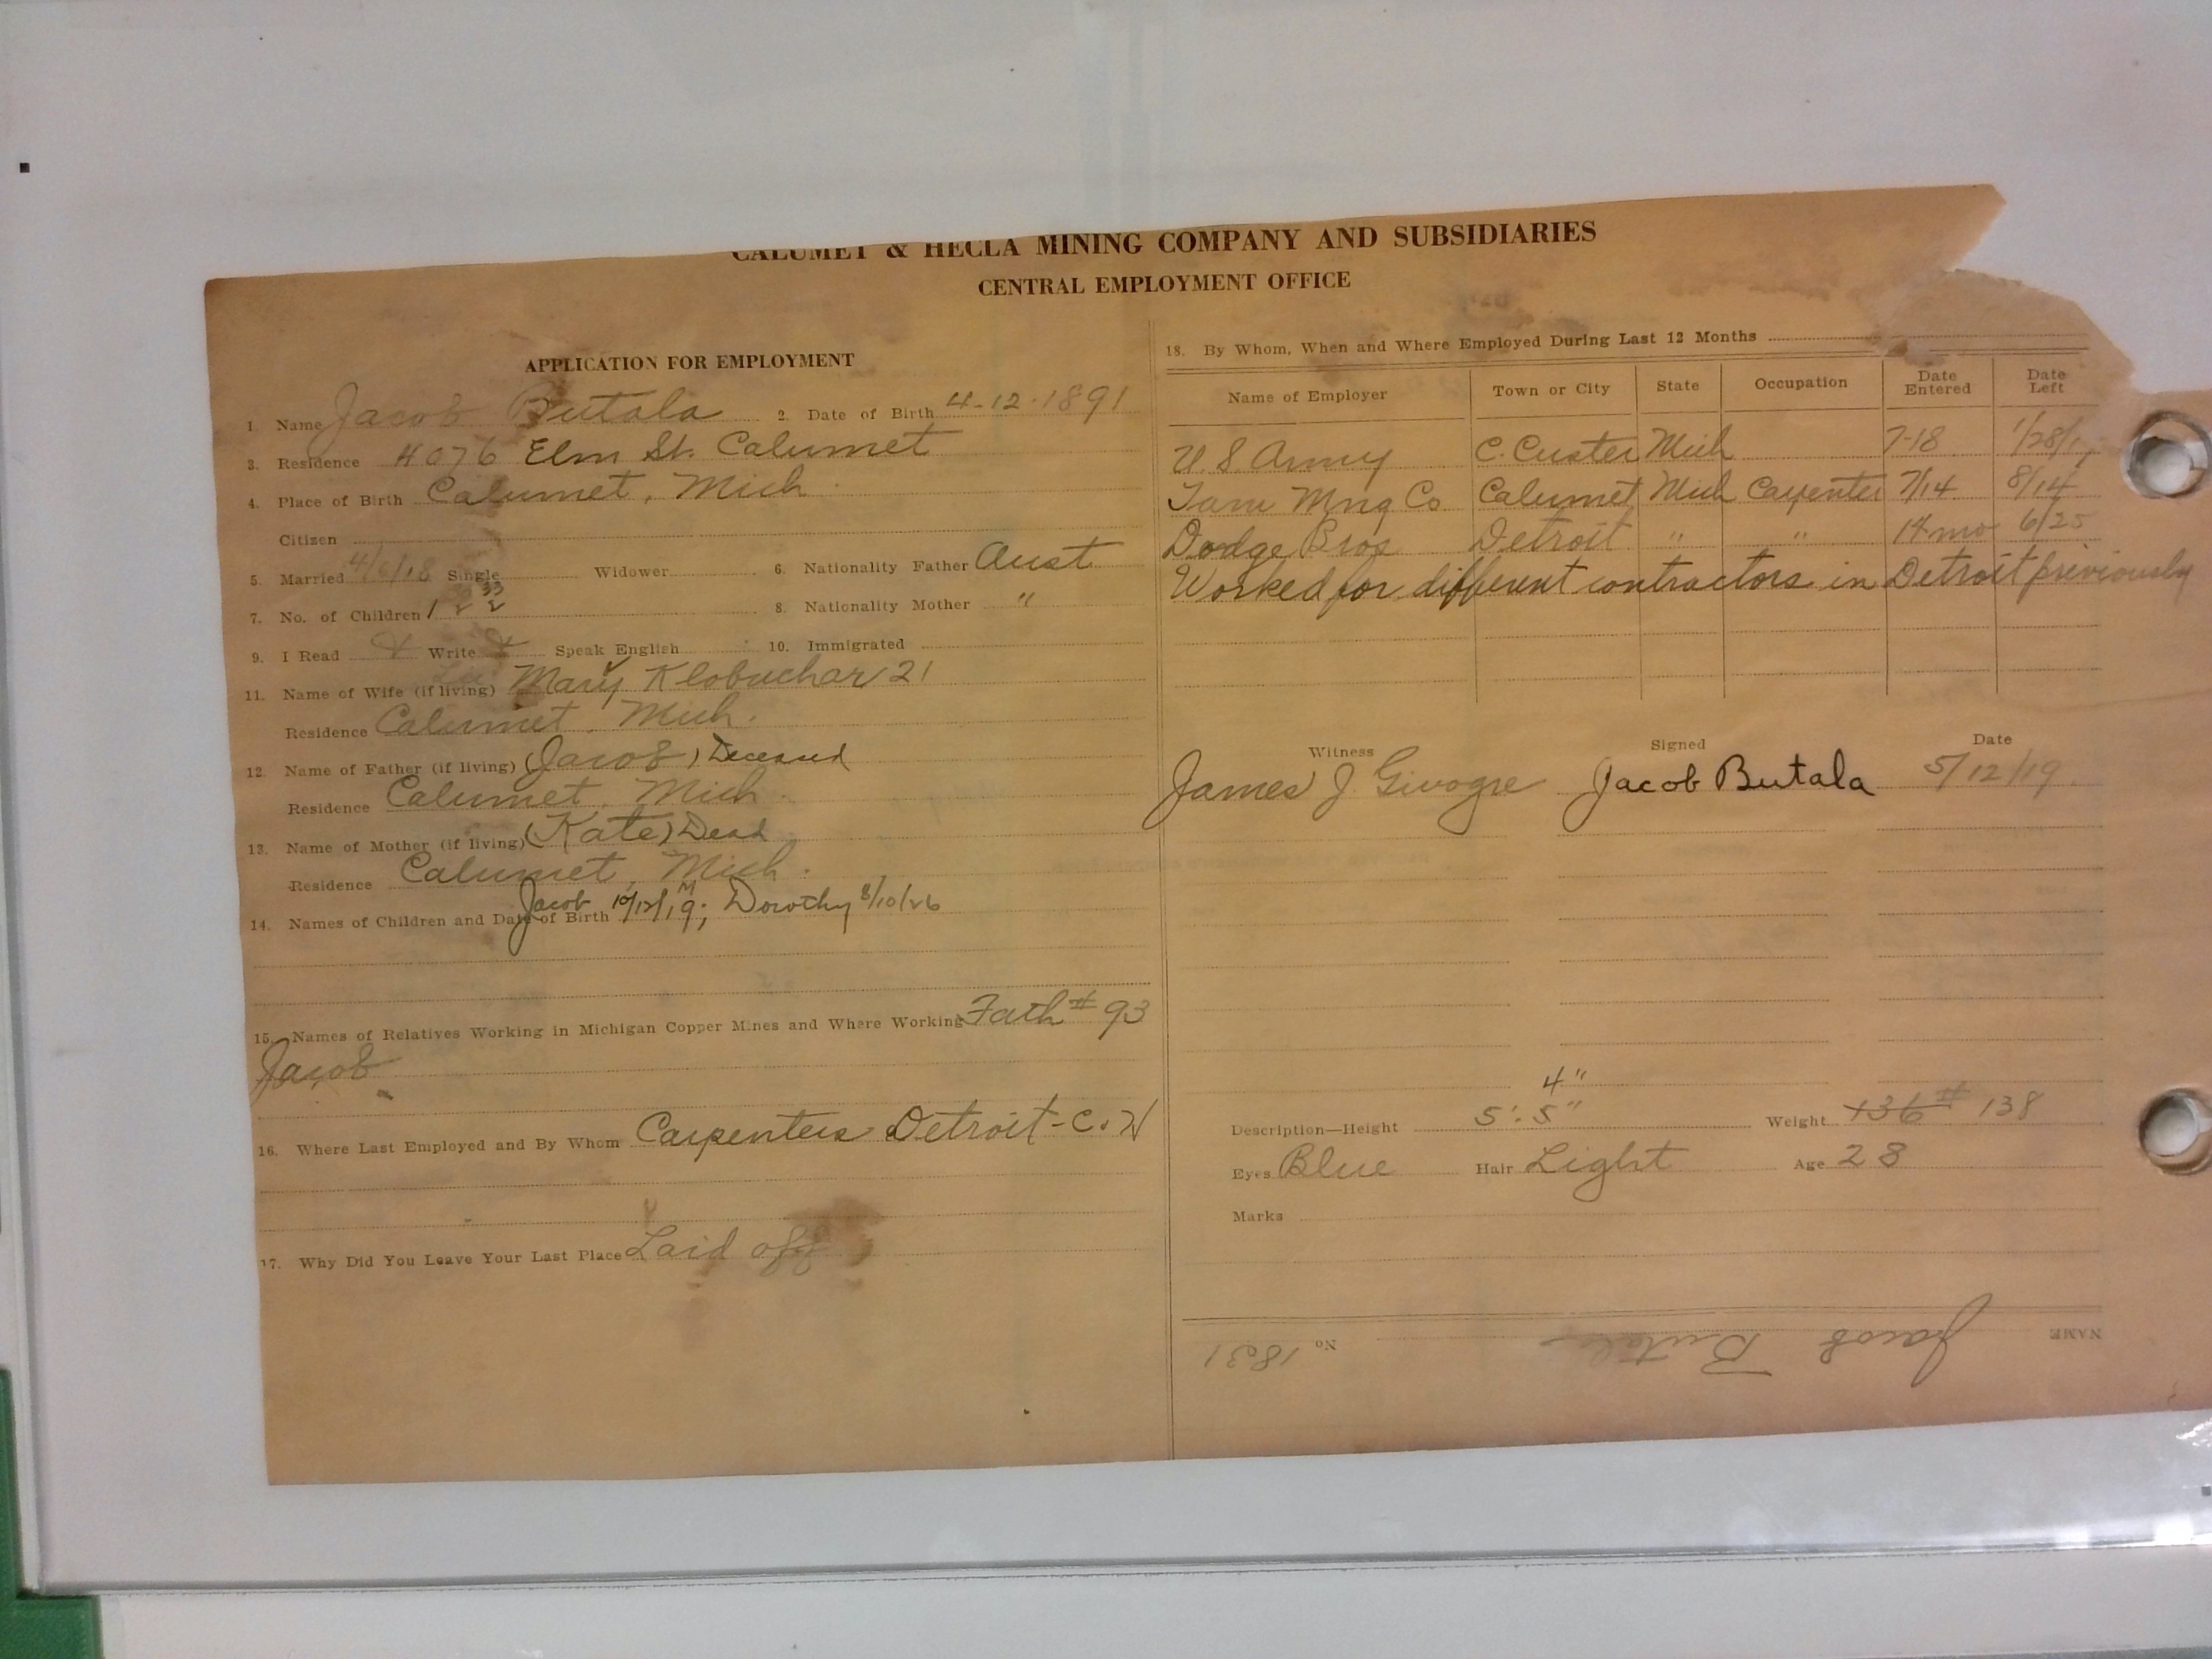 CALUMET & HECLA MINING COMPANY AND SUBSIDIARIES
CENTRAL EMPLOYMENT OFFICE
APPLICATION FOR EMPLOYMENT
1. Name Jacob Butala 2. Date of Birth 4-12-1891
3. Residence 4076 Elm St. Calumet
4. Place of Birth Calumet, Mich
Citizen
5. Married 4/6/18 Single Widower 6. Nationality Father Aust
7. No. of Children 1 2 2 8. Nationality Mother "
9. I Read Write Speak English 10. Immigrated
11. Name of Wife (if living) Mary Klobuchar 21
Residence Calumet, Mich.
12. Name of Father (if living) (Jacob) Deceased
Residence Calumet, Mich.
13. Name of Mother (if living) (Kate) Dead
Residence Calumet, Mich.
14. Names of Children and Date of Birth Jacob 10/12/19; Dorothy 8/10/26
15. Names of Relatives Working in Michigan Copper Mines and Where Working Fath # 93
Jacob
16. Where Last Employed and By Whom Carpenters Detroit - C. H
17. Why Did You Leave Your Last Place Laid off
18. By Whom, When and Where Employed During Last 12 Months
Name of Employer Town or City State Occupation Date Entered Date Left
U.S Army C. Custer Mich 7-18 1/28/1
Tam Mng Co Calumet Mich Carpenter 7/14 8/14
Dodge Bros Detroit " " 14 mo 6/25
Worked for different contractors in Detroit previously
Witness Signed Date
James J Givogre Jacob Butala 5/12/19
4"
Description—Height 5'.5" Weight 136 # 138
Eyes Blue Hair Light Age 28
Marks
NAME Jacob Butala No 1831